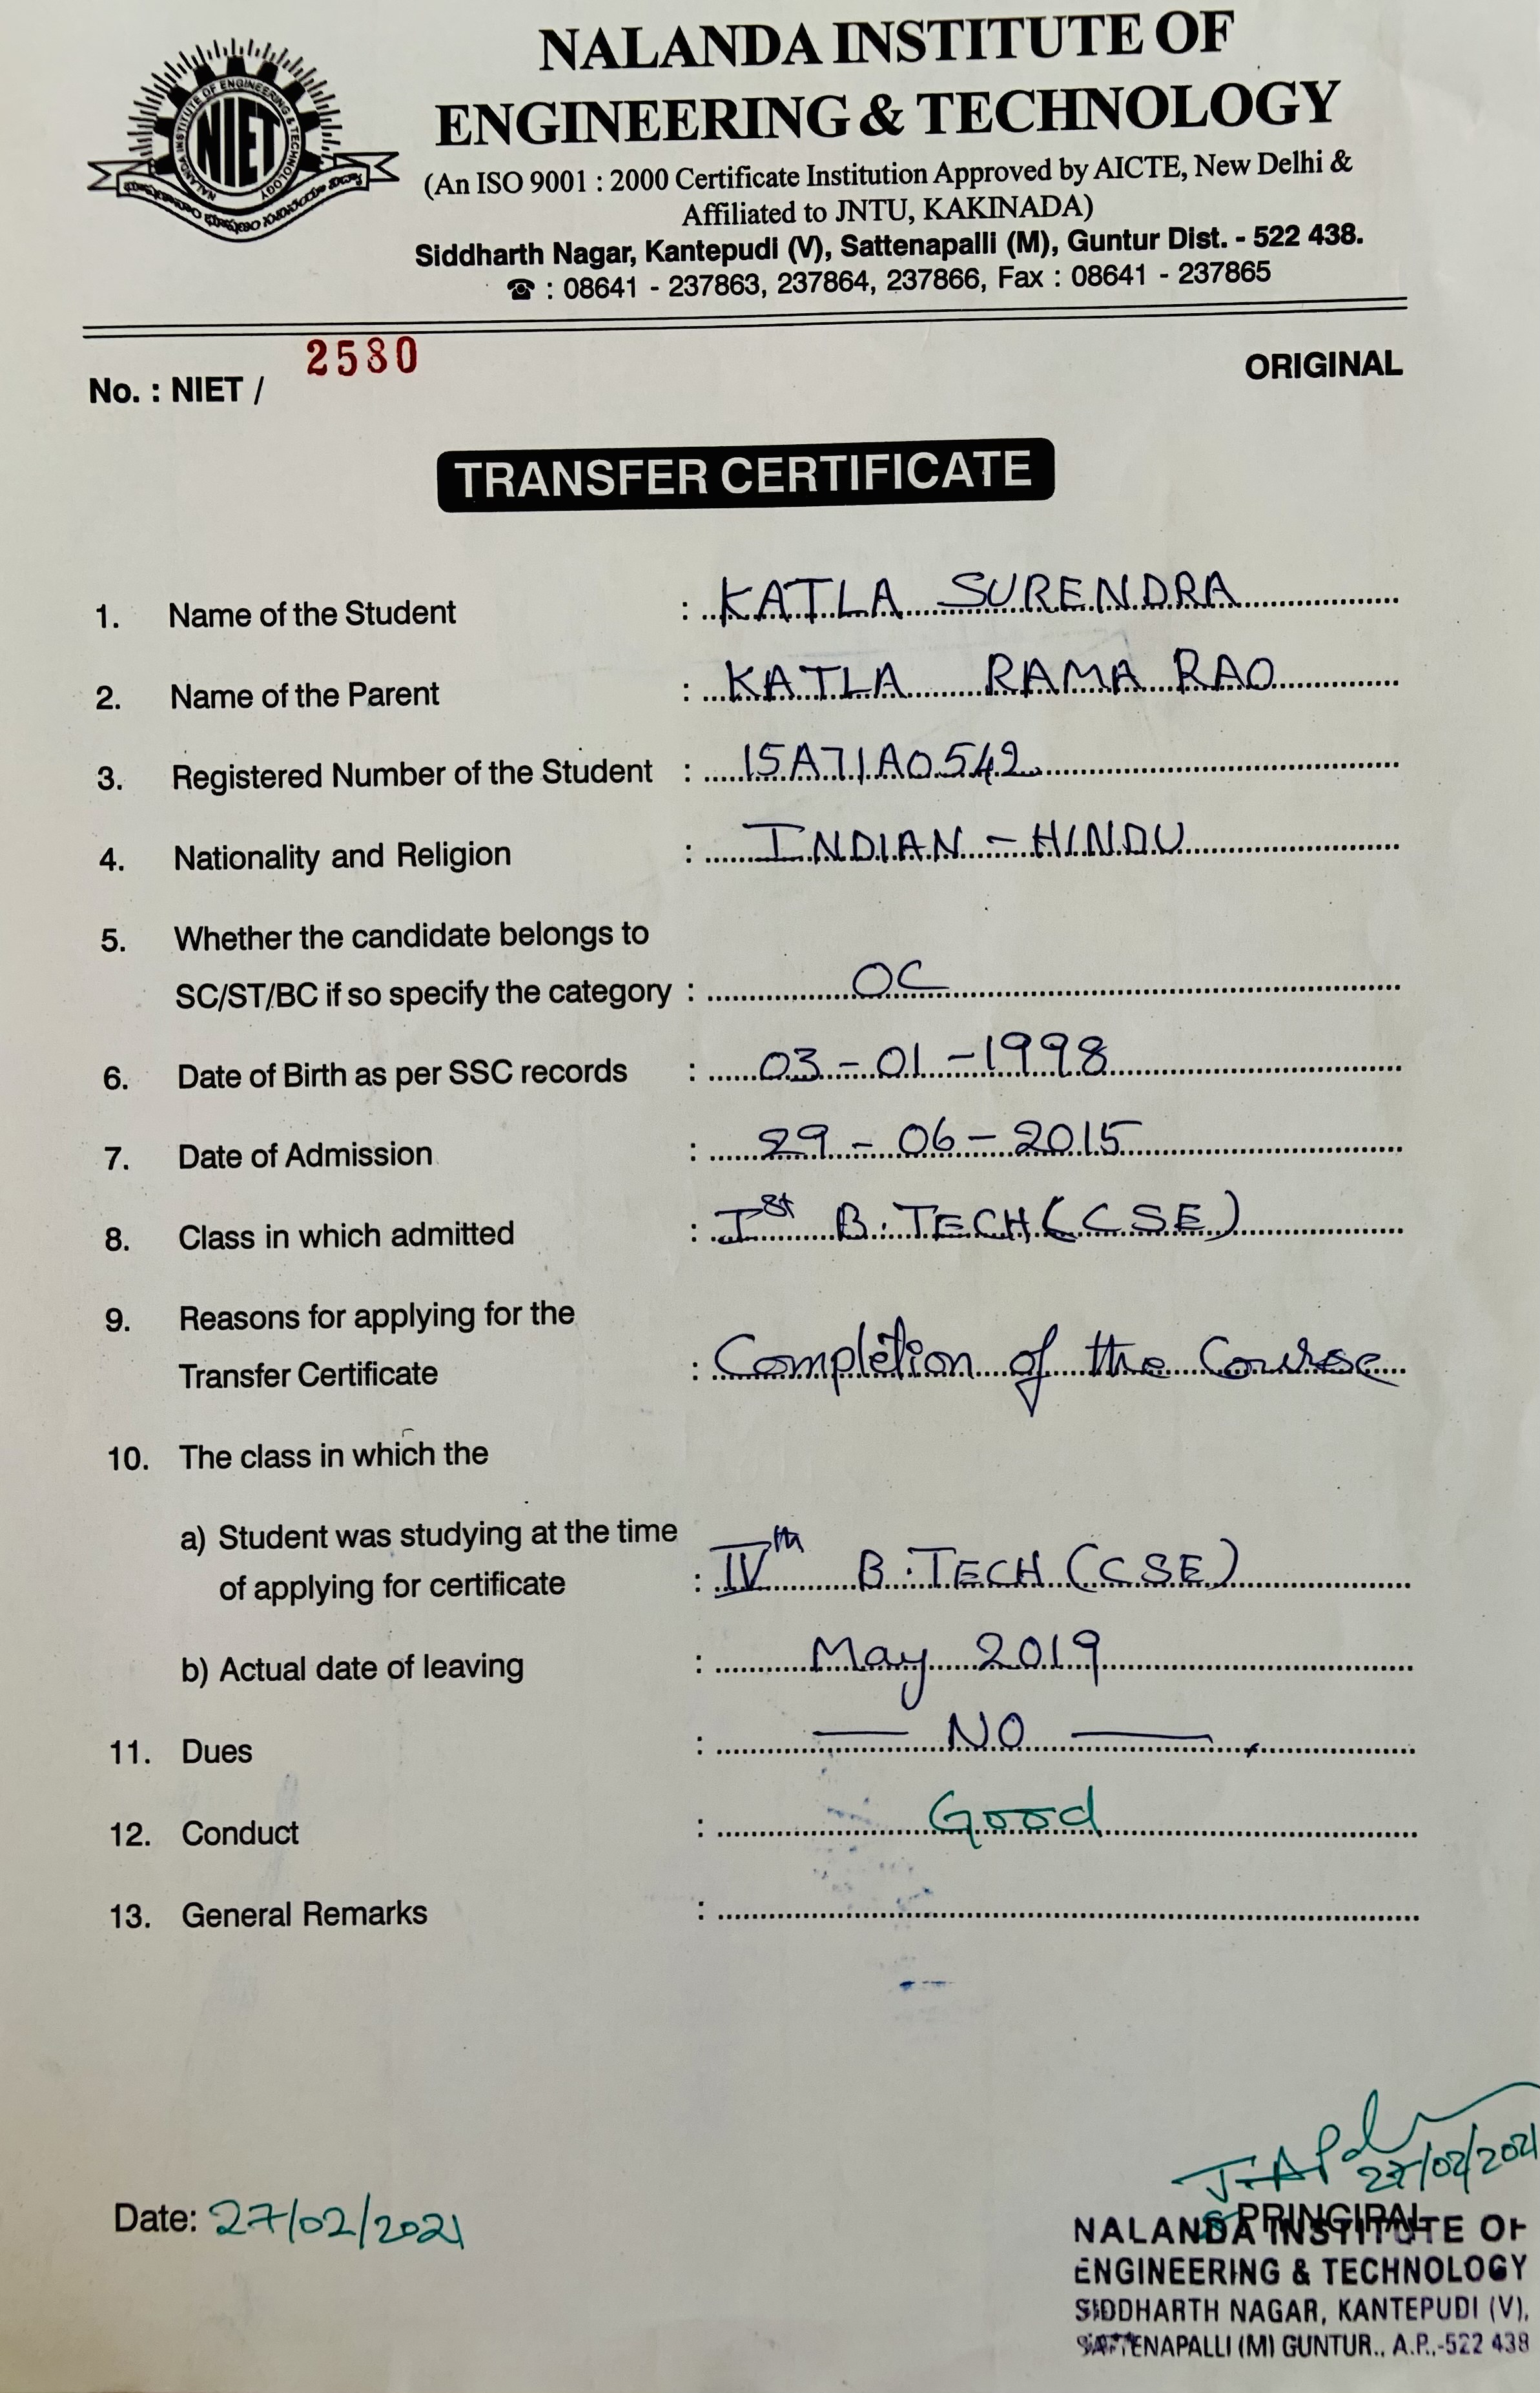 NALANDA INSTITUTE OF ENGINEERING & TECHNOLOGY
NIET
NALANDA INSTITUTE OF
ENGINEERING & TECHNOLOGY
(An ISO 9001 : 2000 Certificate Institution Approved by AICTE, New Delhi &
Affiliated to JNTU, KAKINADA)
Siddharth Nagar, Kantepudi (V), Sattenapalli (M), Guntur Dist. - 522 438.
☎ : 08641 - 237863, 237864, 237866, Fax : 08641 - 237865
No. : NIET / 2580 ORIGINAL
TRANSFER CERTIFICATE
1. Name of the Student : KATLA SURENDRA
2. Name of the Parent : KATLA RAMA RAO
3. Registered Number of the Student : 15A71A0542
4. Nationality and Religion : INDIAN - HINDU
5. Whether the candidate belongs to
SC/ST/BC if so specify the category : OC
6. Date of Birth as per SSC records : 03-01-1998
7. Date of Admission : 29-06-2015
8. Class in which admitted : Ist B.TECH (CSE)
9. Reasons for applying for the
Transfer Certificate : Completion of the Course
10. The class in which the
a) Student was studying at the time
of applying for certificate : IVth B.TECH (CSE)
b) Actual date of leaving : May 2019
11. Dues : — NO —
12. Conduct : Good
13. General Remarks :
27/02/2021
Date: 27/02/2021
PRINCIPAL
NALANDA INSTITUTE OF
ENGINEERING & TECHNOLOGY
SIDDHARTH NAGAR, KANTEPUDI (V),
SATTENAPALLI (M) GUNTUR., A.P.-522 438